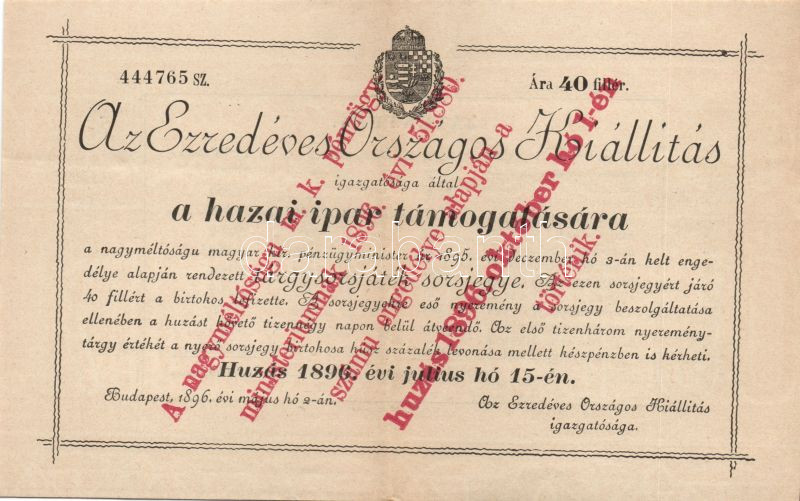 444765 SZ.
Ára 40 fillér.
Az Ezredéves Országos Kiállitás
igazgatósága által
a hazai ipar támogatására
a nagyméltóságu magyar kir. pénzügyminister úr 1895. évi deczember hó 3-án kelt enge-
délye alapján rendezett tárgysorsjáték sorsjegye. Az ezen sorsjegyért járó
40 fillért a birtokos lefizette. A sorsjegyekre eső nyeremény a sorsjegy beszolgáltatása
ellenében a huzást követő tizennégy napon belül átveendő. Az első tizenhárom nyeremény-
tárgy értékét a nyerő sorsjegy birtokosa húsz százalék levonása mellett készpénzben is kérheti.
Huzás 1896. évi julius hó 15-én.
Budapest, 1896. évi május hó 2-án.
Az Ezredéves Országos Kiállitás
igazgatósága.
A nagyméltóságu m. k. pénzügy-
ministeriumnak 1896. évi 51.880.
számu engedélye alapján a
huzás 1896. oktober hó 1-én
történik.
darabanth